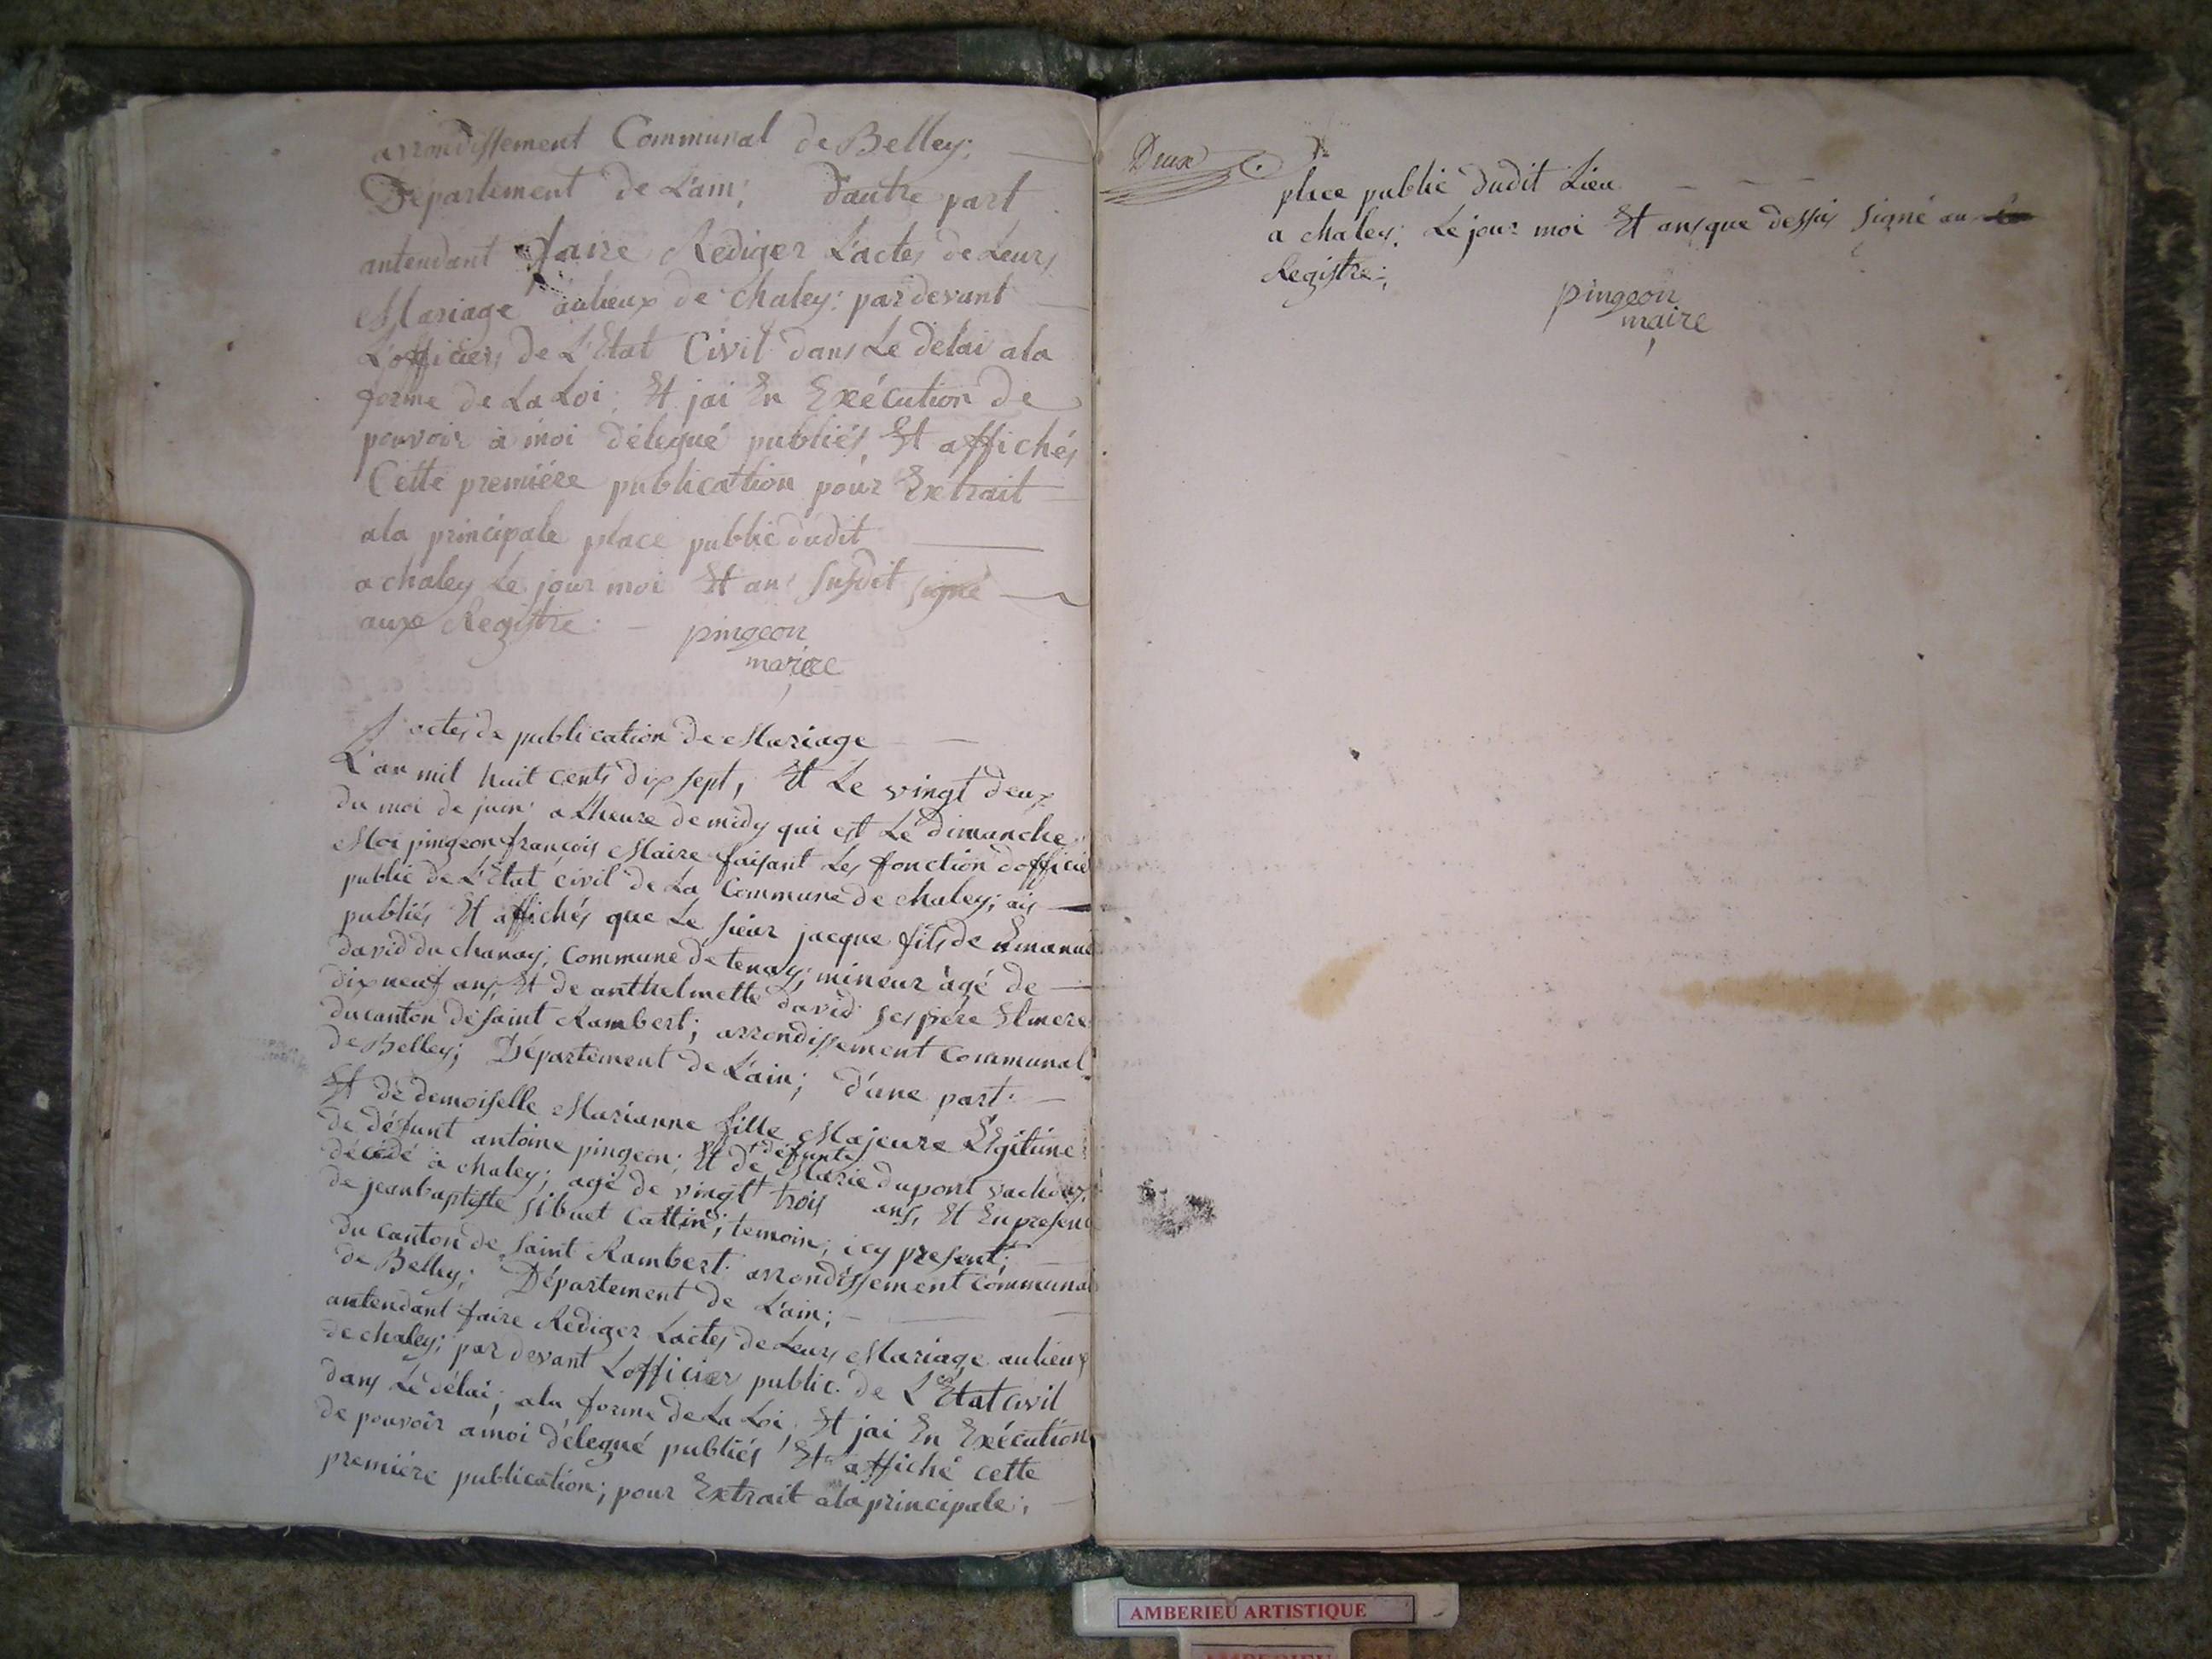 arrondissement Communal de Belley;
Département de L'ain; d'autre part
antendant faire Rediger L'actes de Leurs
Mariage aulieux de chaley: par devant
L'officiers de L'Etat Civil dans Le delai ala
forme de La Loi; Et jai En Exécution de
pouvoir à moi délegué publiés Et affichés
Cette premiére publication pour Extrait
ala principale place public dudit
a chaley Le jour moi Et ans susdit signé
aux Registre:
pingeon
maire
L'actes de publication de Mariage
L'an mil huit cents dix sept, Et Le vingt deux
du moi de juin a L'heure de midy qui est Le dimanche
Moi pingeon françois Maire faisant Les fonction d'officie
public de L'Etat civil de La Commune de chaley; ais
publiés Et affichés que Le sieur jacque fils de Emanuel
david du chanay; Commune de tenay; mineur àgé de
dix neuf ans, Et de anthelmette david ses pére Et mere
du canton de saint Rambert; arrondissement Communal
de Belley; Département de L'ain; d'une part.
Et de demoiselle Marianne fille Majeure Légitime
de défunt antoine pingeon; Et de défunte Marie dupont
décédé à chaley; agé de vingt trois ans, Et En presence
de jean baptiste sibuet Cattin; temoin; icy present;
du canton de saint Rambert arrondissement Communal
de Belley; Département de L'ain;
antendant faire Rediger L'actes de Leurs Mariage aulieux
de chaley; par devant L'officier public de L'Etat civil
dans Le délai; ala forme de La Loi, Et jai En Exécution
de pouvoir a moi délegué publiés Et affiché cette
premiére publication; pour Extrait ala principale;
Deux
place public dudit Lieu
a chaley; Le jour moi Et ans que dessus signé au
Registre;
pingeon
maire
AMBERIEU ARTISTIQUE
AMBERIEU